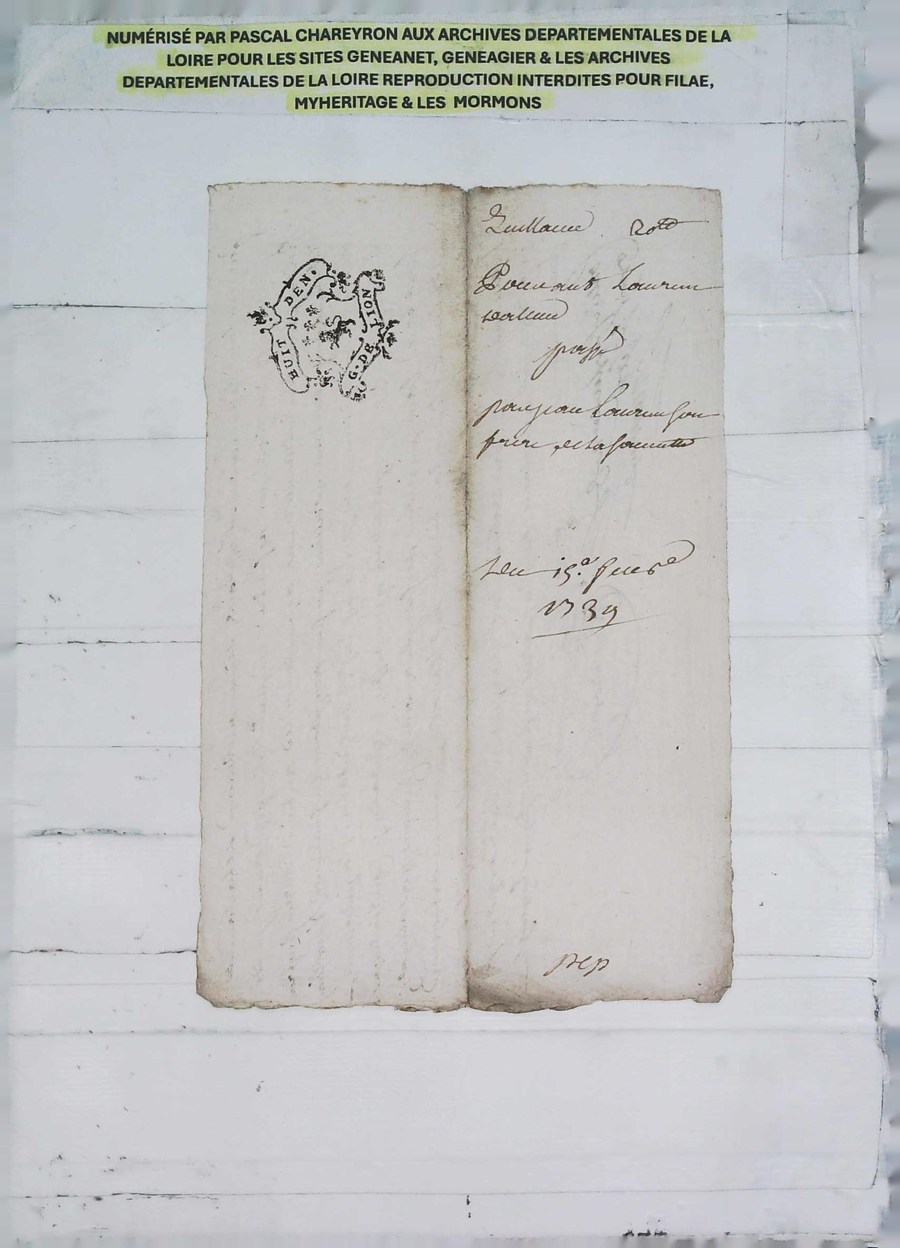 NUMÉRISÉ PAR PASCAL CHAREYRON AUX ARCHIVES DEPARTEMENTALES DE LA
LOIRE POUR LES SITES GENEANET, GENEAGIER & LES ARCHIVES
DEPARTEMENTALES DE LA LOIRE REPRODUCTION INTERDITES POUR FILAE,
MYHERITAGE & LES MORMONS
HUIT DEN.
G. DE LION
Laurens
passé
par jean Laurens son
frere
Du 15e
1739
pep